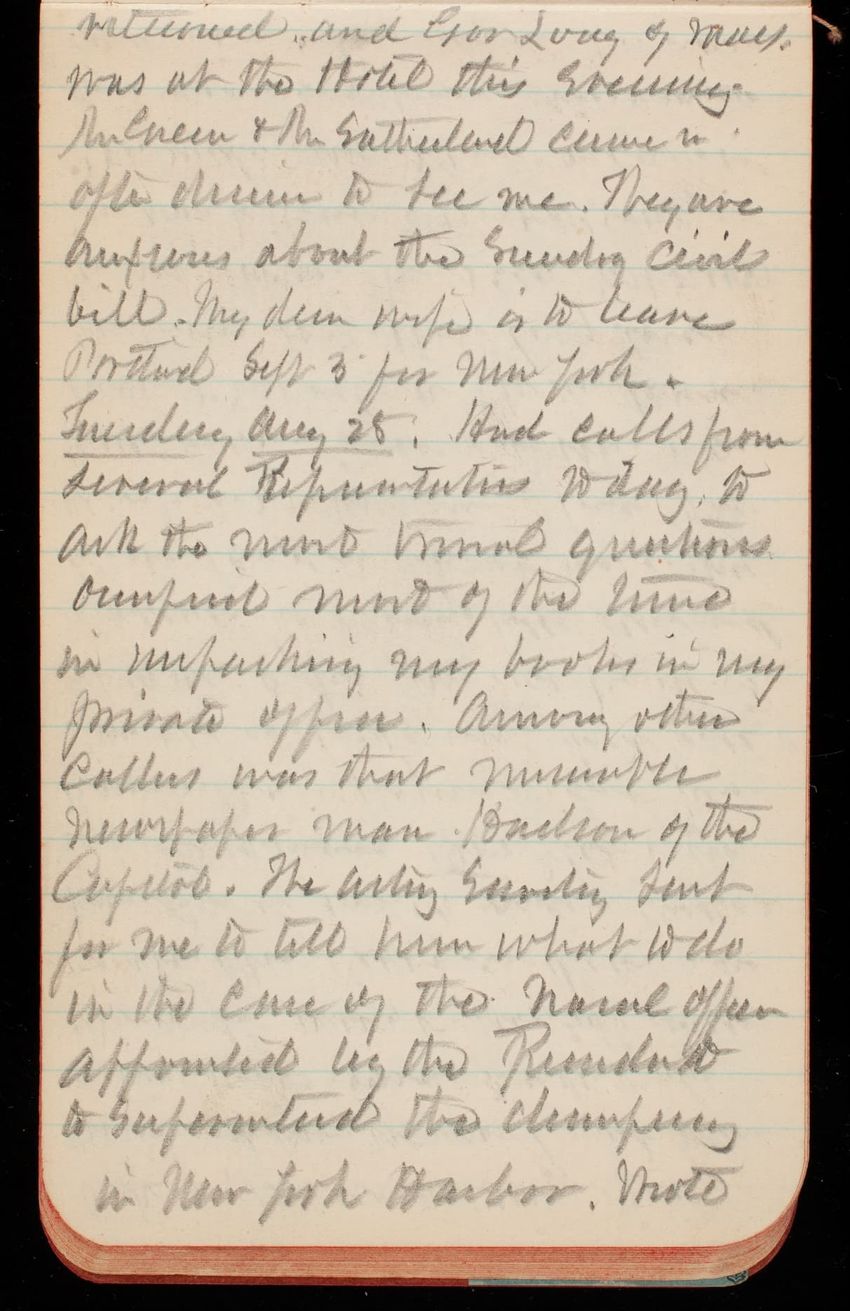 and Gov Long of Mass.
was at the Hotel this Evening
Mr Green & Mr Sutherland came in
after dinner to see me. They are
anxious about the Sundry Civil
bill. My dear wife is to leave
Portland Sept 3 for New York.
Tuesday Aug 28. Had calls from
several Representatives today, to
ask the most trivial questions
Occupied most of the time
in unpacking my books in my
private office. Among other
Callers was that miserable
newspaper man Hudson of the
Capitol. The acting Secretary sent
for me to tell him what to do
in the case of the Naval officer
appointed by the President
to Superintend the dumping
in New York Harbor. Wrote